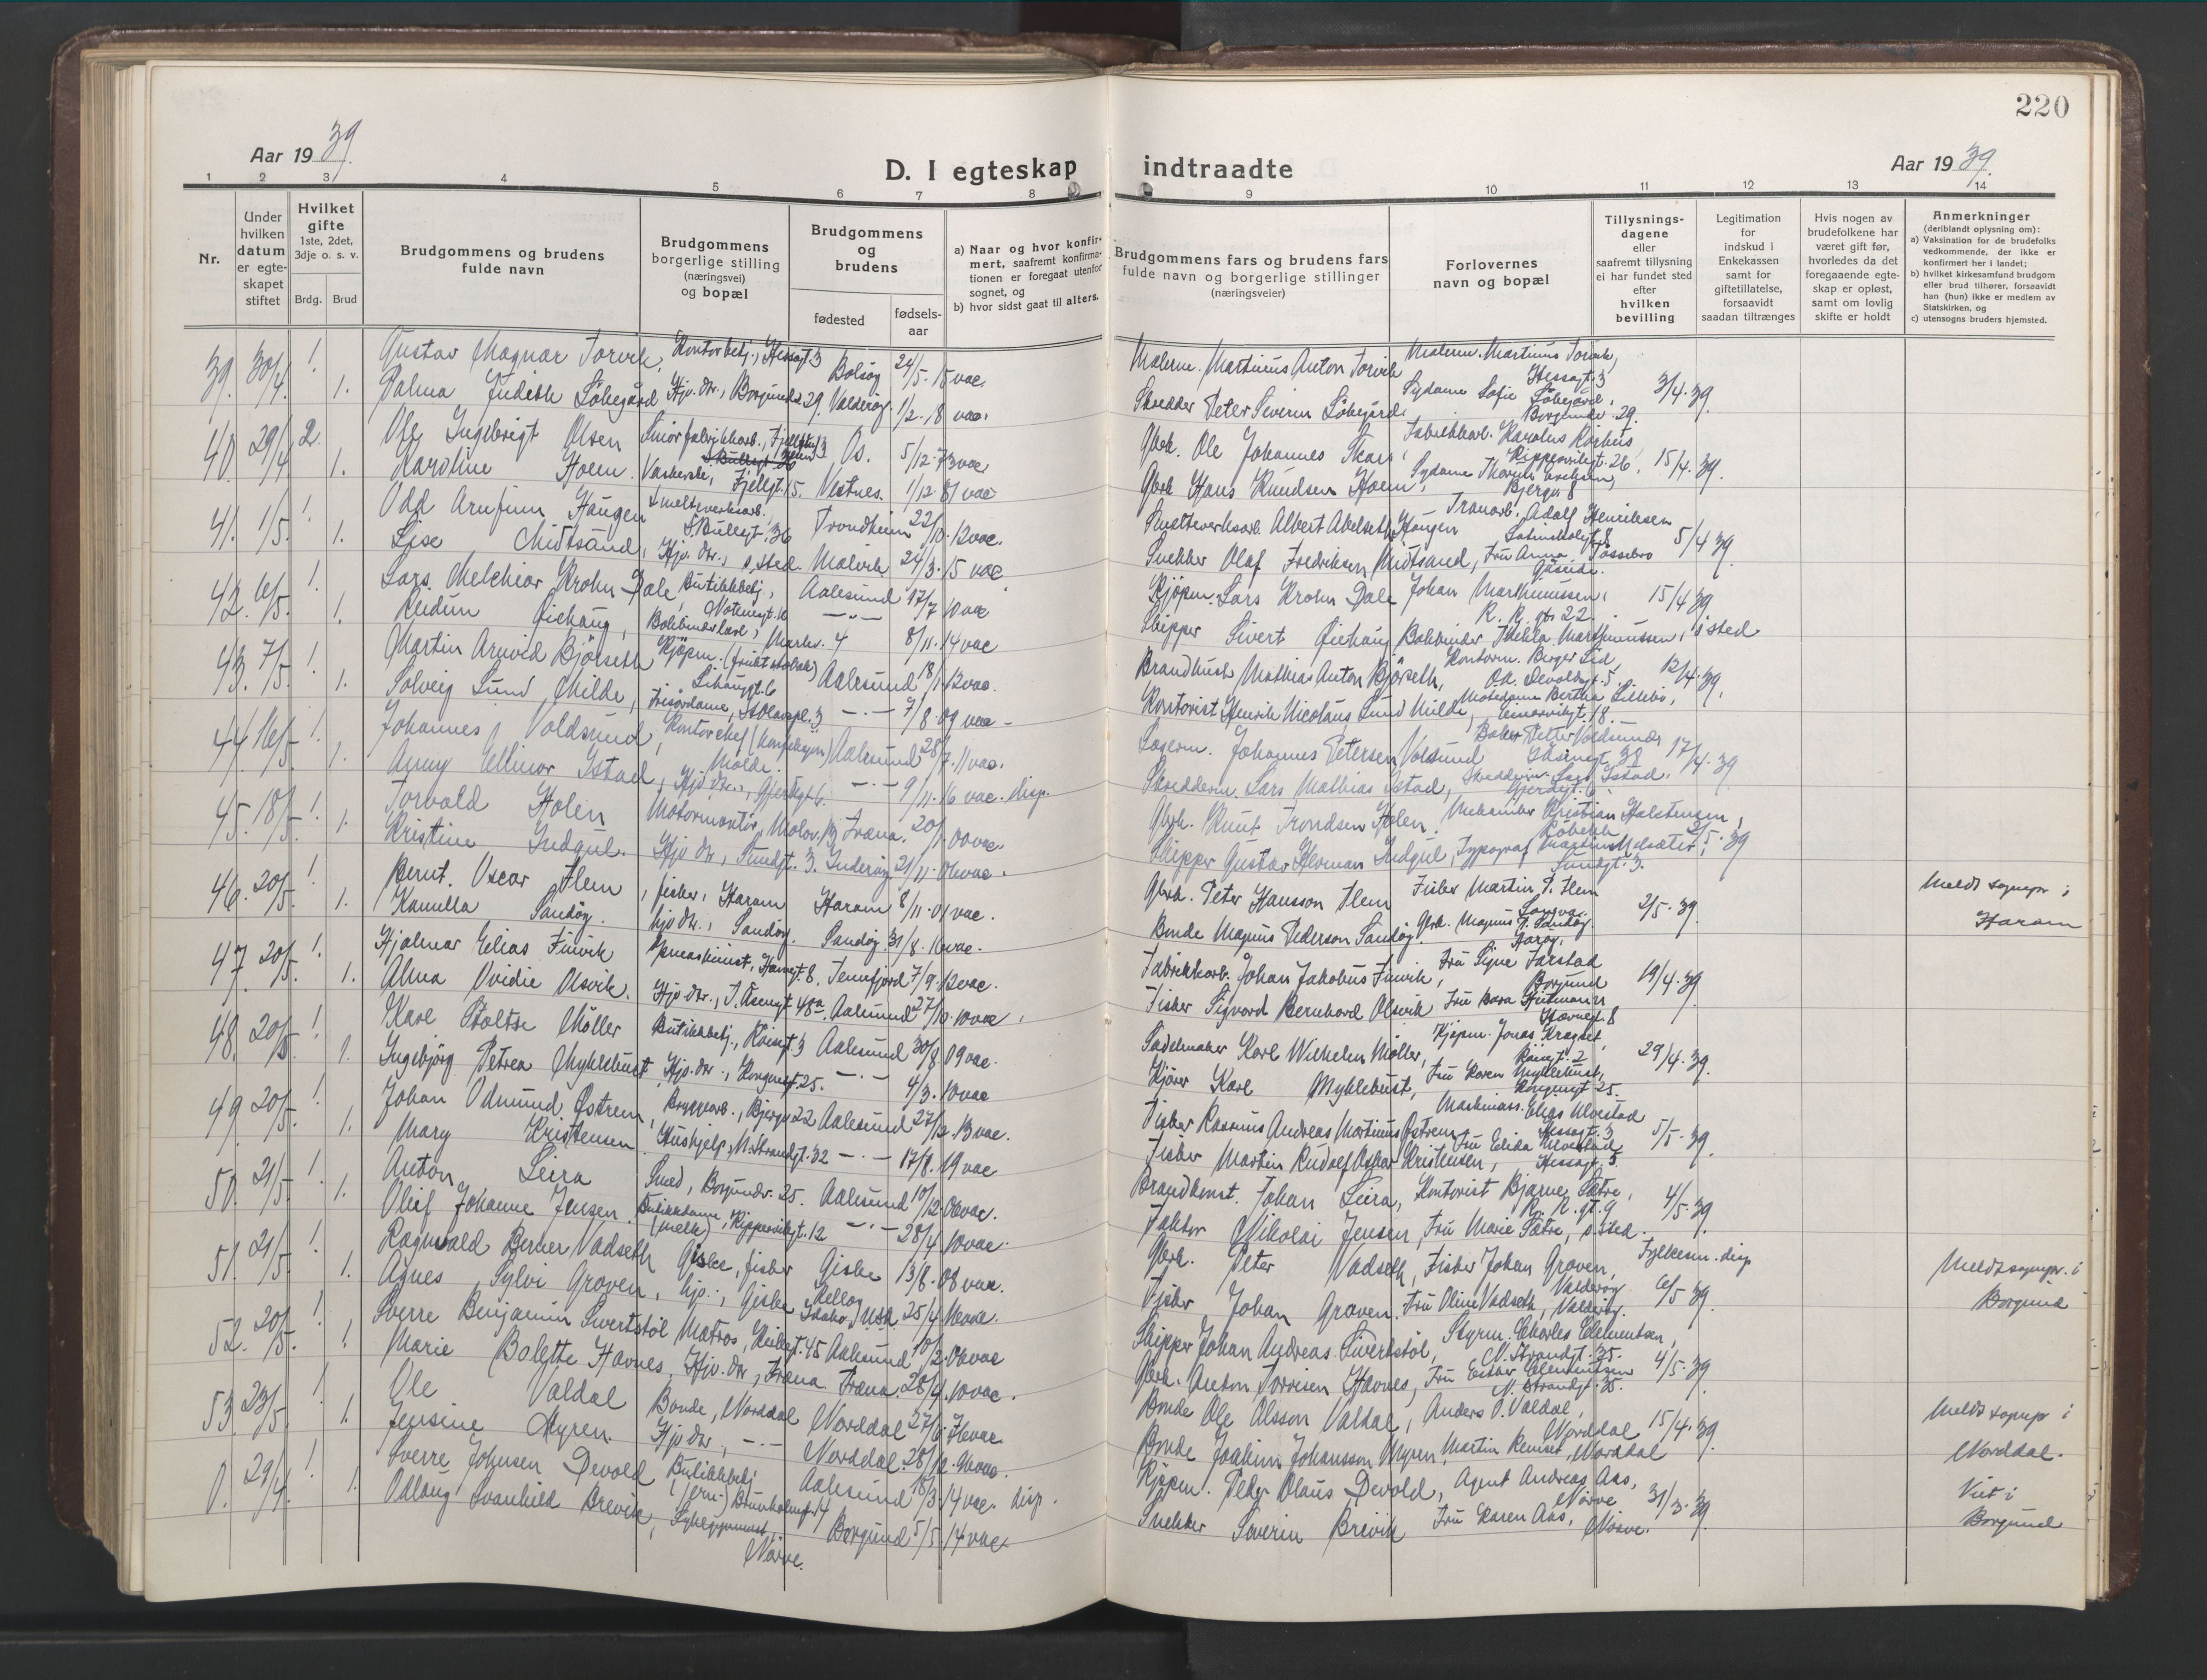 220
Aar 1939.
D. I egteskap indtraadte
Aar 1939.
1 2 3 4 5 6 7 8 9 10 11 12 13 14
Nr.
Under hvilken datum er egte-skapet stiftet
Hvilket gifte
1ste, 2det, 3dje o. s. v.
Brdg. Brud
Brudgommens og brudens fulde navn
Brudgommens borgerlige stilling (næringsvei) og bopæl
Brudgommens og brudens
fødested
fødsels-aar
a) Naar og hvor konfir-mert, saafremt konfirma-tionen er foregaat utenfor sognet, og
b) hvor sidst gaat til alters.
Brudgommens fars og brudens fars fulde navn og borgerlige stillinger (næringsveier)
Forlovernes navn og bopæl
Tillysnings-dagene eller saafremt tillysning ei har fundet sted efter hvilken bevilling
Legitimation for indskud i Enkekassen samt for giftetillatelse, forsaavidt saadan tiltrænges
Hvis nogen av brudefolkene har været gift før, hvorledes da det foregaaende egte-skap er opløst, samt om lovlig skifte er holdt
Anmerkninger (deriblandt oplysning om):
a) Vaksination for de brudefolks vedkommende, der ikke er konfirmert her i landet;
b) hvilket kirkesamfund brudgom eller brud tilhører, forsaavidt han (hun) ikke er medlem av Statskirken, og
c) utensogns bruders hjemsted.
39. 30/4. 1. Gustav Magnar Torvik, Kontorbetj., Hessagt. 3 Bolsøy 24/5. 15 vac. Malerm. Martinus Anton Torvik Malerm. Martinus Torvik, Hessagt. 3 3/4. 39.
1. Palma Judith Løbegård Hjv. dtr., Borgundv. 29. Valderøy 1/2. 18 vac. Skredder Peter Severin Løbegård. Sydame Sofie Løbegård, Borgundv. 29.
40. 29/4 2. Ole Ingebrigt Olsen Os. 5/12. 73 vac Gbrk. Ole Johannes Fabrikkarb. Karolus Kipperviksgt. 26. 15/4. 39.
1. Karoline Hoem. Fjellgt. 15. Vestnes. 1/12. 81 vac Gbrk Hans Knudsen Hoem, Sydame Bjergv. 8
41. 1/5. 1. Odd Arnfinn Haugen Smelteverksarb. St. Bullsgt. 36 Trondheim 22/10. 12 vac. Smelteverksarb. Albert Abelseth Haugen Tranarb. Adolf Henriksen 5/4 39.
1. Lise Midtsand, Hjv. dtr., s. sted. Malvik 24/3. 15 vac Snekker Olaf Fredriksen Midtsand, Fru Anna
42. 6/5. 1. Lars Melchior Krohn Dale, Butikkbetj., Notenesgt. 10 Aalesund 17/7 10 vac Kjøpm. Lars Krohn Dale Johan Marthinussen, R. R. gt. 22 15/4 39
1. Reidun Giehaug, Marker. 4 —"— 8/11. 14 vac Skipper Sivert Giehaug Bokbinder Marthinussen, s sted
43. 7/5. 1. Martin Arnvid Bjørseth Kjøpm. Aalesund 18/1. 12 vac. Brandkusk Mathias Anton Bjørseth, Kontorm. Birger Lid, O.A. Devoldsgt. 5. 12/4. 39.
1. Solveig Lund Milde, Frisørdame, St Olavspl. 3 —"— 7/8. 09 vac Kontorist Henrik Nicolaus Lund Milde, Bertha Lillebø, 18.
44 16/5. 1. Johannes Voldsund, Kontorchef Molde. Aalesund 28/7. 11 vac. Lagerm. Johannes Petersen Volsund Baker Petter Voldsund, 17/4. 39
1. Anny Ellinor Istad, Hjv. dtr., Gjerdgt. 6. —"— 9/11. 16 vac. disp. Skredderm. Lars Mathias Istad, Skredderm. Lars Istad, Gjerdgt. 6.
45. 18/5. 1. Torvald Holen Motormontør, Molov. 13 Fræna. 20/1. 00 vac. Gbrk. Knut Trondsen Holen. Mekaniker Kristian Halstensen, 2/5. 39
1. Kristine Indgul. Hjv dtr, Sundgt. 3. Inderøy 21/11. 06 vac. Skipper Gustav Herman Indgul, Typograf Martin Melsæter, Sundgt. 3.
46. 20/5. 1. Bernt Oscar Hem, fisker, Haram Haram 8/11. 01 vac. Gbrk. Peter Hansson Hem Fisker Martin P. Hem 2/5. 39. Meldt sognepr i
1. Kamilla Sandøy. hjv dtr., Sandøy. Sandøy. 31/8. 16 vac. Bonde Magnus Pederson Sandøy. Gbrk. Magnus P. Sandøy Haram
47. 20/5. 1. Hjalmar Elias Finvik Tennfjord 7/9. 12 vac. Fabrikkarb. Johan Jakobus Finvik, Fru Signe Farstad Borgund 19/4. 39
1. Alma Ovidie Olsvik. Hjv dtr., I. Åsensgt. 48a. Aalesund 27/10. 10 vac. Fisker Sigvard Bernhard Olsvik Fru Kara
48. 20/5. 1. Karl Stoltze Møller Butikkbetj., Røisgt. 3 Aalesund 30/8 09 vac. Sadelmaker Karl Wilhelm Møller, Kjøpm. Jonas Kragset, Røisgt. 2 29/4. 39.
1. Ingebjørg Petrea Myklebust Hjv. dtr., Kongensgt. 25. —"— 4/3. 10 vac Kjører Karl Myklebust, Fru Karen Myklebust, Kongensgt 25.
49. 20/5. 1. Johan Odmund Østrem, Bryggearb., Bjergv. 22 Aalesund 27/12. 13 vac. Fisker Rasmus Andreas Martinus Østrem Maskinass. Elias Ulvestad Hessagt. 3 5/5. 39.
1. Mary Kristensen. Hushjelp, N. Strandgt. 32 —"— 17/8. 19 vac Fisker Martin Rudolf Oskar Kristensen, Fru Elida Ulvestad Hessagt. 3.
50. 21/5. 1. Anton Leira Smed, Borgundv. 25. Aalesund 10/12. 06 vac. Brandkonst. Johan Leira, Kontorist Bjarne Sætre, R. R. gt. 9 4/5. 39.
1. Oleif Johanne Jensen. Butikkdame (melk), Kipperviksgt. 12 —"— 28/4. 10 vac. Faktor Nikolai Jensen, Fru Marie Sætre, s. sted.
51. 21/5. 1. Ragnvald Berber Vadseth Giske, fisker Giske 13/8. 08 vac. Gbrk. Peter Vadseth, Fisker Johan Groven, Valderøy Fylkesm. disp 6/5 39. Meldt sognepr. i
1. Agnes Sylvi Groven, hjv., Giske Kellog Idaho, USA. 25/4 16 vac. Fisker Johan Groven. Fru Oline Vadseth, Valderøy. Borgund
52. 20/5. 1. Sverre Benjamin Sivertstøl Matros, 45 Aalesund 10/2. 06 vac Skipper Johan Andreas Sivertstøl, Styrm. Charles Clementsen, N. Strandgt. 35. 4/5. 39.
1. Marie Bolette Havnes, Hjv. dtr, Fræna Fræna. 28/4. 10 vac. Gbrk. Anton Torrisen Havnes, Fru Esther Clementsen N. Strandgt. 35.
53. 23/5. 1. Ole Valdal Bonde, Norddal Norddal 27/6. 76 vac. Bonde Ole Olsson Valdal, Anders O. Valdal, Norddal 15/4. 39. Meldt sognepr i
1. Jensine Myren. Hjv dtr, —"— Norddal. 28/12. 96 vac. Bonde Joakim Johansson Myren, Martin Norddal Norddal.
0. 29/4. 1. Sverre Johnsen Devold Butikkbetj (jern-) Brunholmgt 4 Aalesund 18/3. 14 vac. disp. Kjøpm. Peder Olaus Devold, Agent Andreas Aas, Nørve 31/3. 39. Viet i
1. Odlaug Svanhild Brevik, Sykegymnast, Nørve. Borgund 5/5. 14 vac Snekker Severin Brevik Fru Karen Aas, Nørve. Borgund